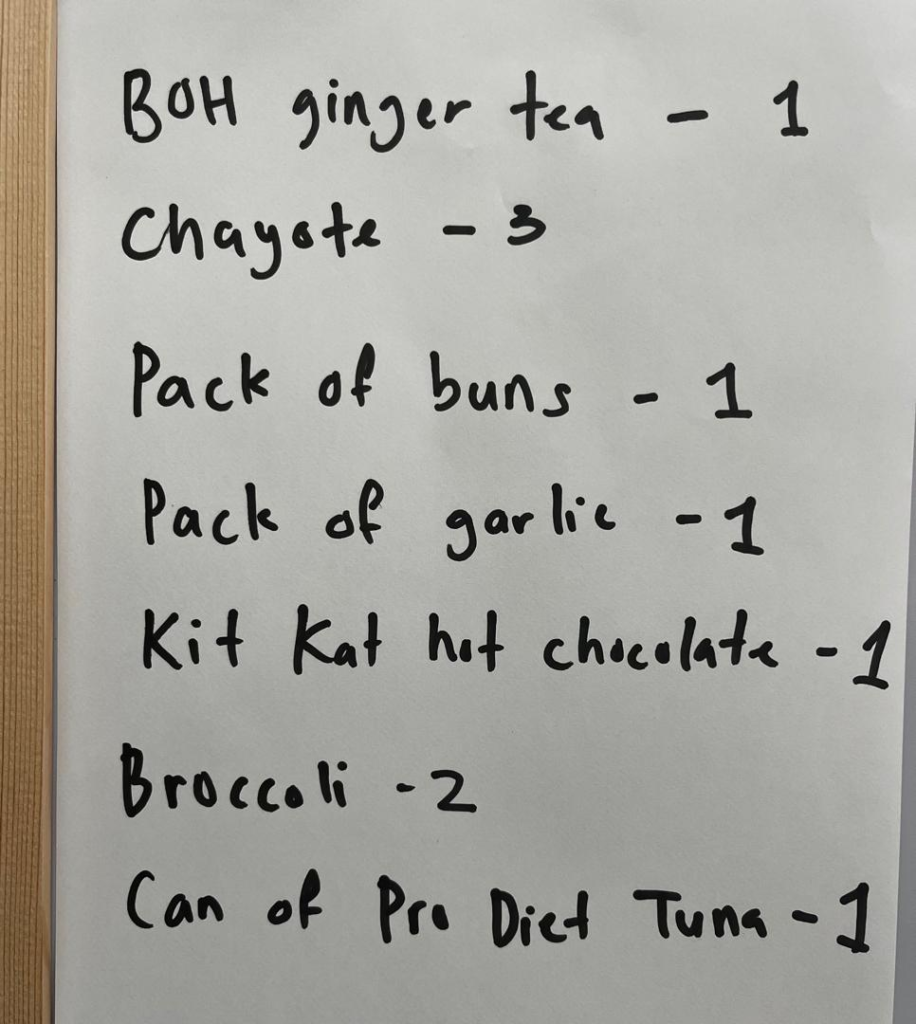 BOH ginger tea - 1
Chayote - 3
Pack of buns - 1
Pack of garlic - 1
Kit Kat hot chocolate - 1
Broccoli - 2
Can of Pro Diet Tuna - 1